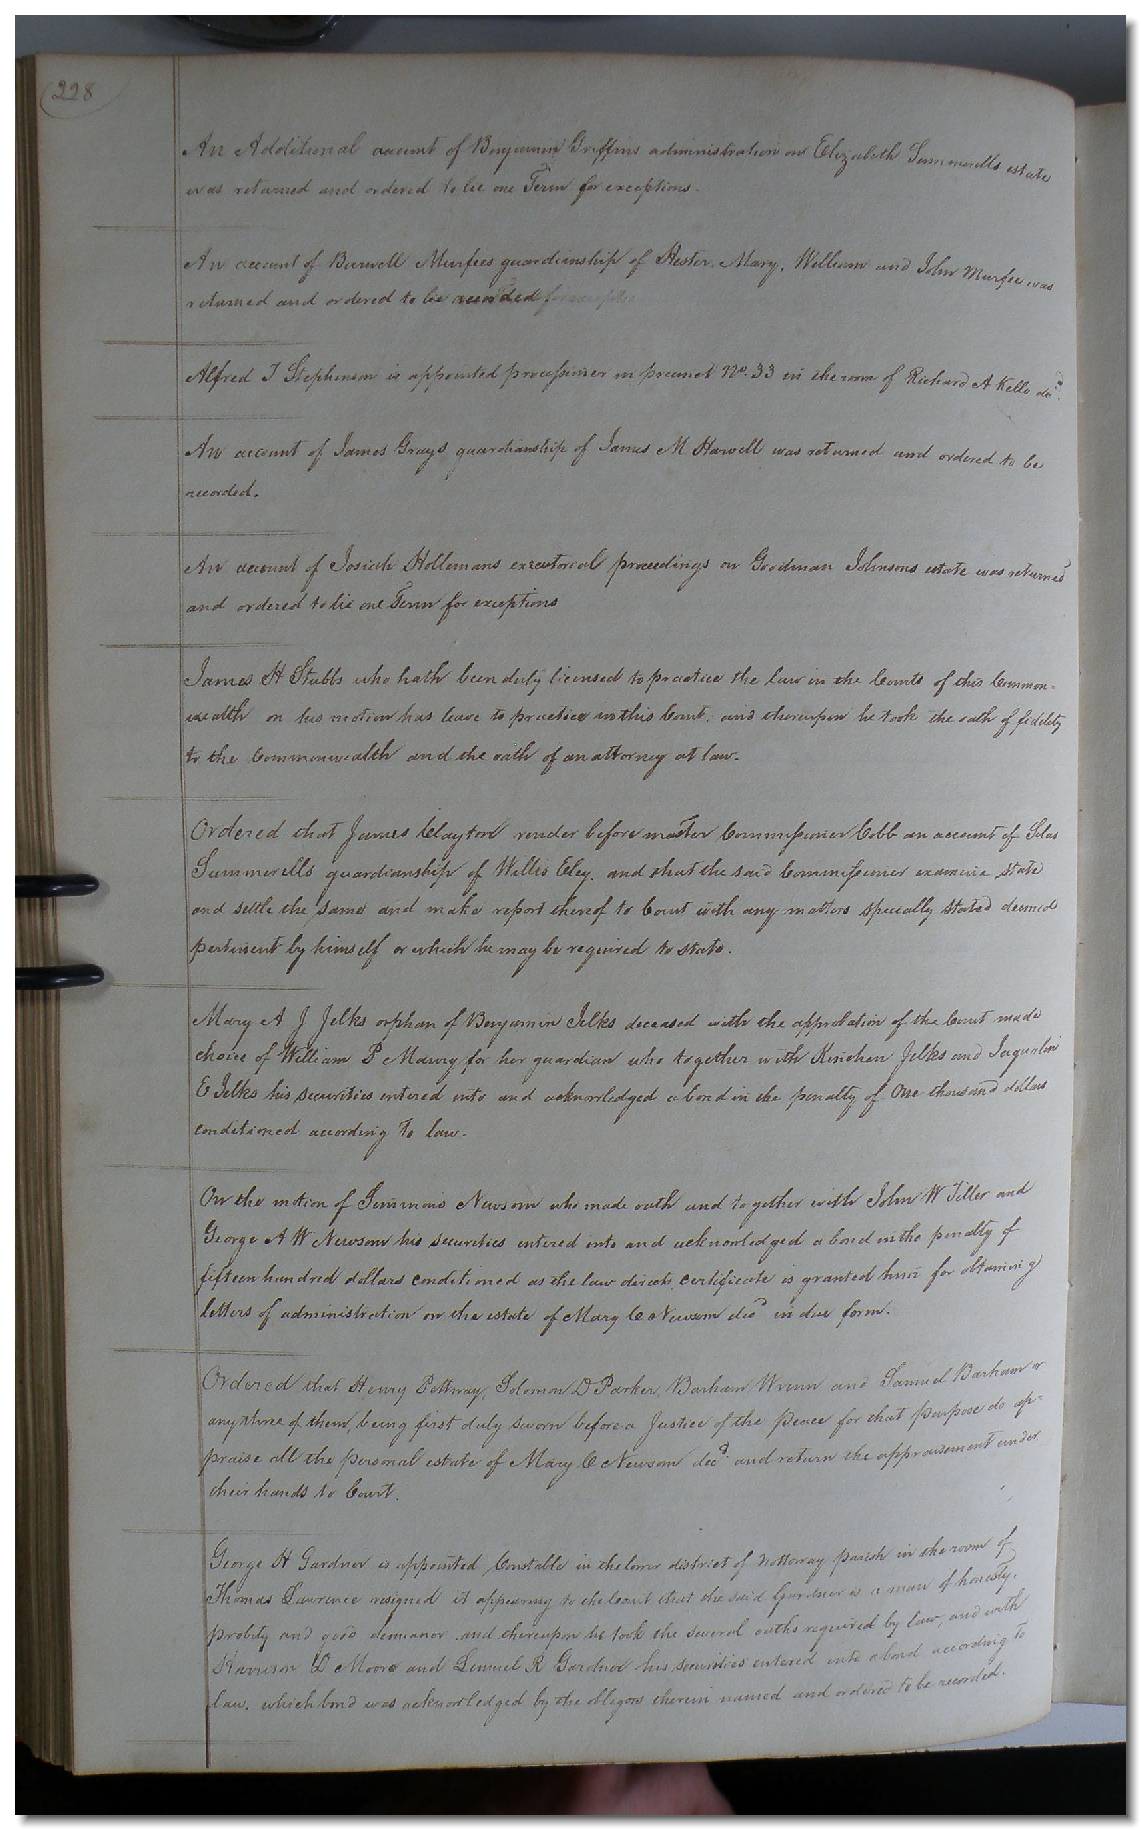 228
An Additional account of Benjamin Griffins administration on Elizabeth Summerells estate
was returned and ordered to lie one Term for exceptions.
An account of Burwell Murfees guardianship of Hester, Mary, William and John Murfee was
returned and ordered to be recorded
Alfred J Stephenson is appointed processioner in precinct No. 33 in the room of Richard A Kello decd.
An account of James Grays guardianship of James M Harwell was returned and ordered to be
recorded.
An account of Josiah Hollemans executorial proceedings on Goodman Johnsons estate was returned
and ordered to lie one Term for exceptions
James H Stubbs who hath been duly licensed to practice the law in the Courts of this Common-
wealth on his motion has leave to practice in this Court, and thereupon he took the oath of fidelity
to the Commonwealth and the oath of an attorney at law.
Ordered that James Clayton render before master Commissioner Cobb an account of Silas
Summerells guardianship of Willis Eley, and that the said Commissioner examine state
and settle the same and make report thereof to Court with any matters specially stated deemed
pertinent by himself or which he may be required to state.
Mary A J Jelks orphan of Benjamin Jelks deceased with the approbation of the Court made
choice of William P Maury for her guardian who together with Kinchen Jelks and
E Jelks his securities entered into and acknowledged a bond in the penalty of One thousand dollars
conditioned according to law.
On the motion of Simmons Newsom who made oath and together with John W Teller and
George A W Newsom his securities entered into and acknowledged a bond in the penalty of
fifteen hundred dollars conditioned as the law directs certificate is granted him for obtaining
letters of administration on the estate of Mary C Newsom decd in due form.
Ordered that Henry Pettway, Solomon D Parker, Barham Wrenn and Samuel Barham or
any three of them, being first duly sworn before a Justice of the Peace for that purpose do ap-
praise all the personal estate of Mary C Newsom decd. and return the appraisement under
their hands to Court.
George H Gardner is appointed Constable in the lower district of Nottoway parish in the room of
Thomas Lawrence resigned it appearing to the Court that the said Gardner is a man of honesty,
probity and good demeanor and thereupon he took the several oaths required by law, and with
Harrison D Moore and Lemuel R Gardner his securities entered into a bond according to
law, which bond was acknowledged by the obligors therein named and ordered to be recorded.